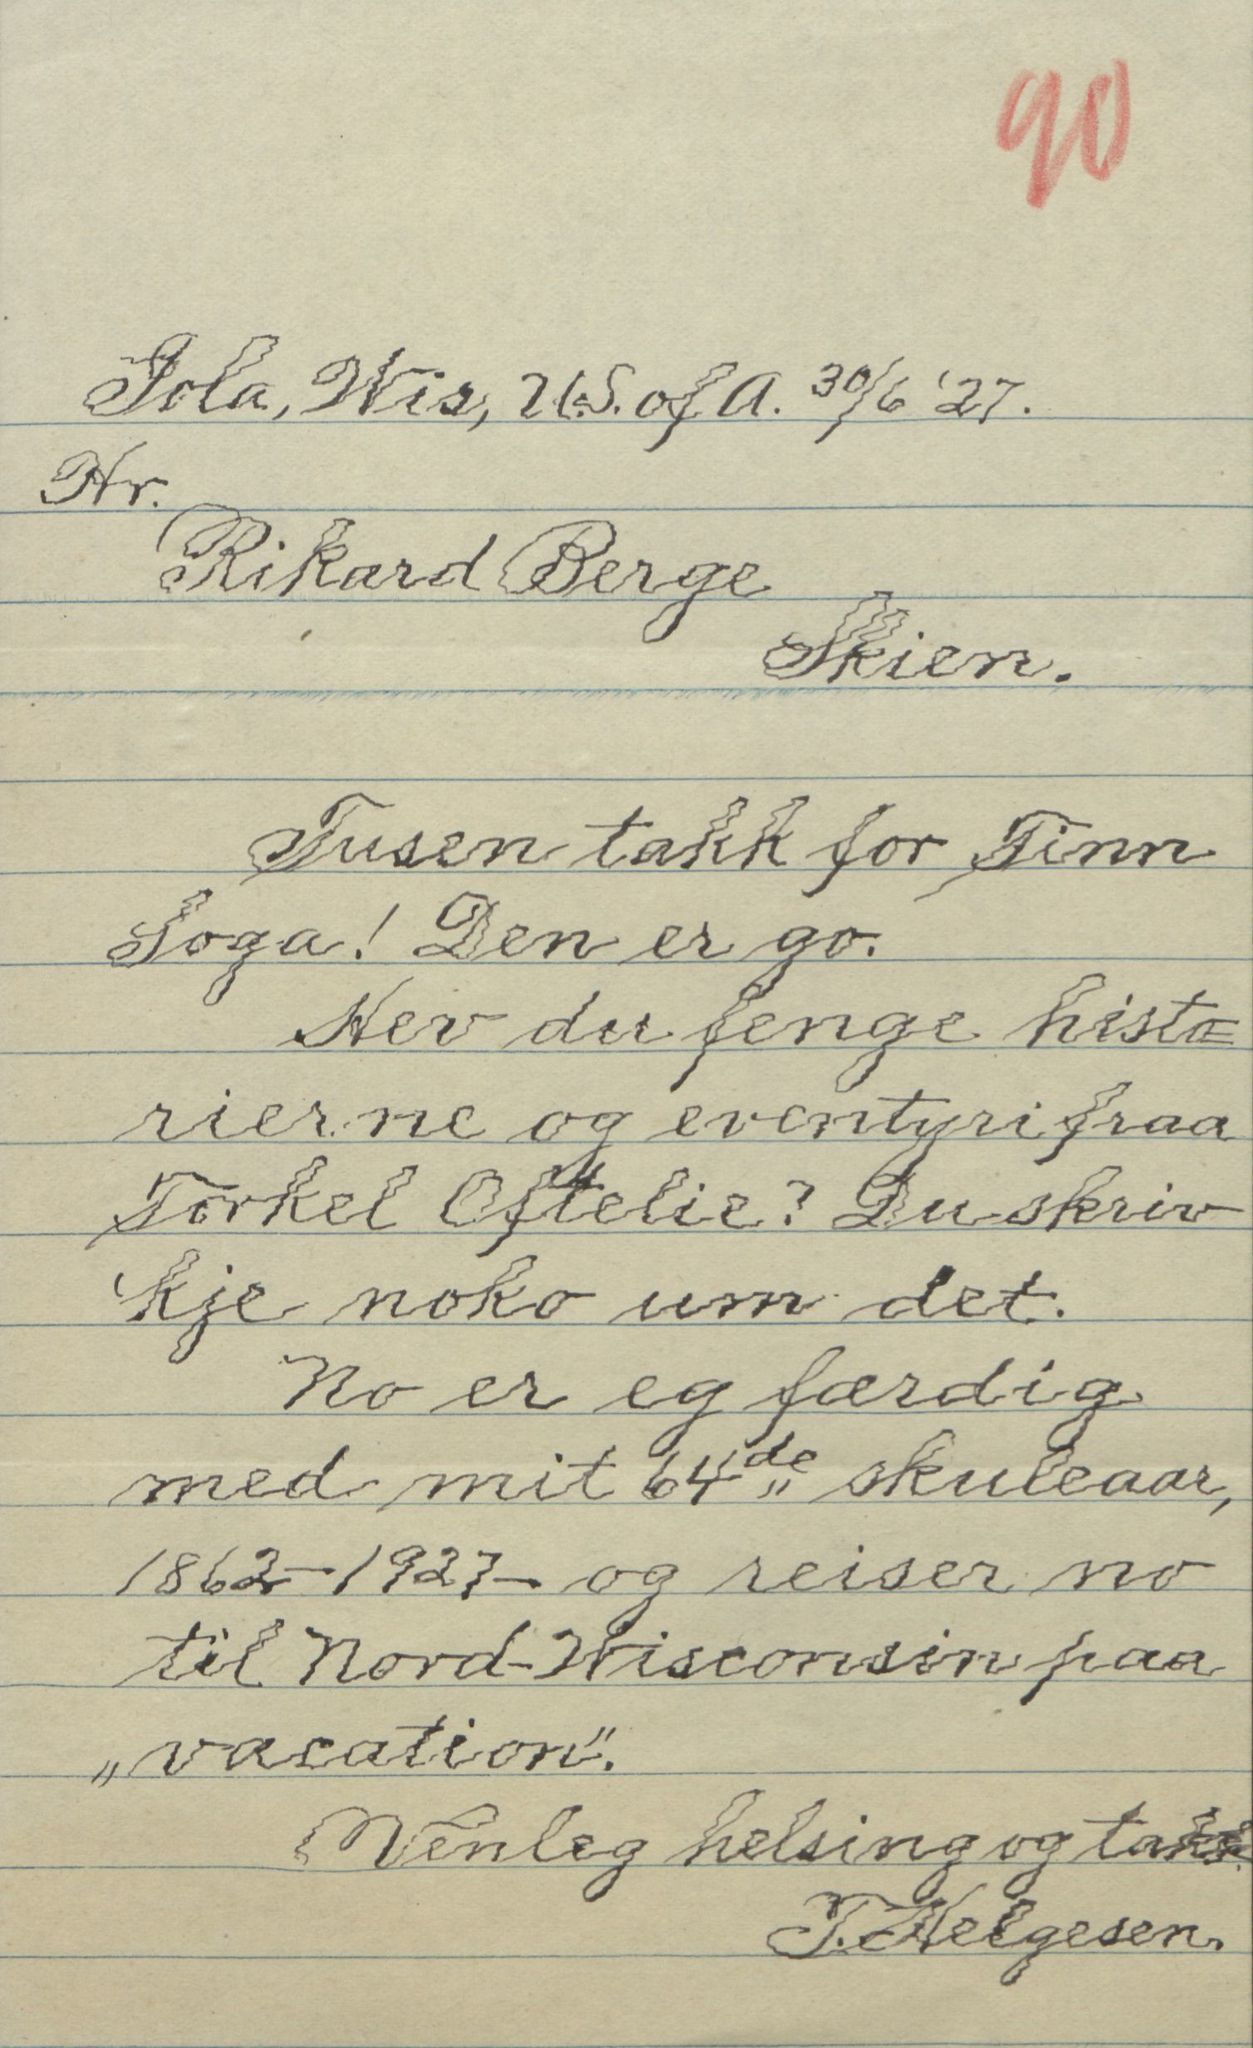 90
Iola, Wis, U.S. of A. 30/6 '27.
Hr.
Rikard Berge
Skien.
Tusen takk for Tinn
Soga! Den er go.
Hev du fenge histo=
rierne og eventyri fraa
Torkel Oftelie? Du skriv
'kje noko um det.
No er eg færdig
med mit 64de skuleaar,
1862-1927- og reiser no
til Nord-Wisconsin paa
„vacation".
Venleg helsing og takk.
T. Helgesen.